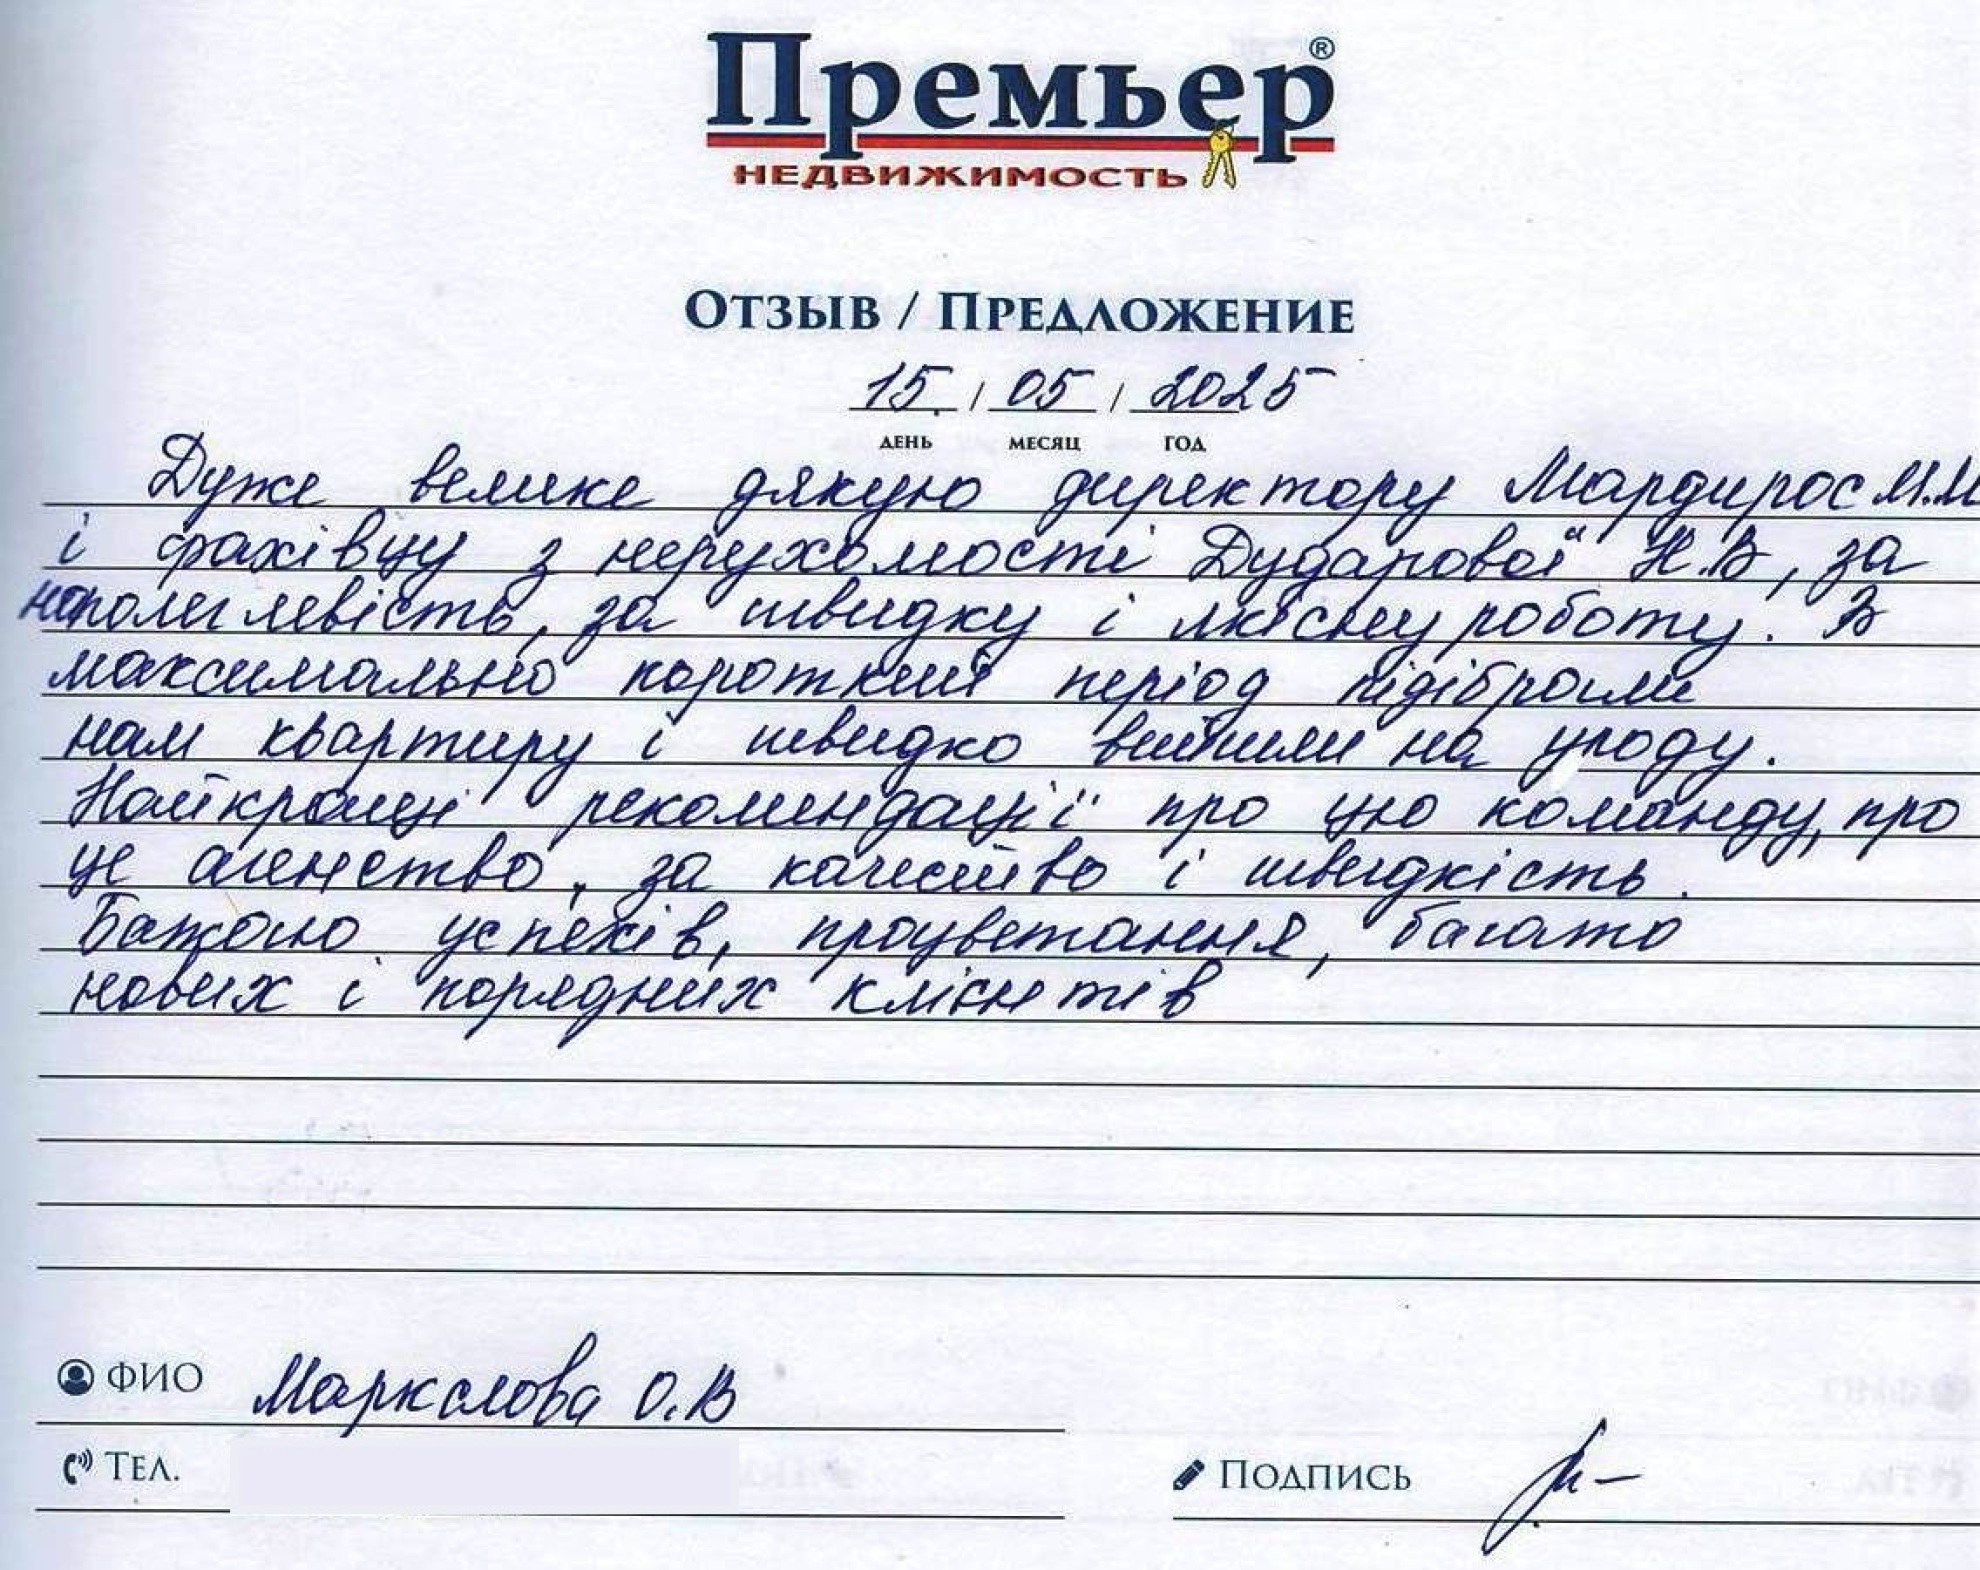 Премьер®
НЕДВИЖИМОСТЬ
ОТЗЫВ / ПРЕДЛОЖЕНИЕ
15. / 05 / 2025
ДЕНЬ МЕСЯЦ ГОД
Дуже велике дякую директору Мардирос М.М
і фахівцу з нерухомості Дударової Н.В, за
наполеглевість, за швидку і якісну роботу. В
максимально короткий період підібрали
нам квартиру і швидко вийшли на угоду.
Найкращі рекомендації про цю команду, про
це агенство, за качество і швидкість.
Бажаю успехів, процветання, багато
нових і порядних клієнтів
ФИО Маркслова О.В
ТЕЛ.
ПОДПИСЬ